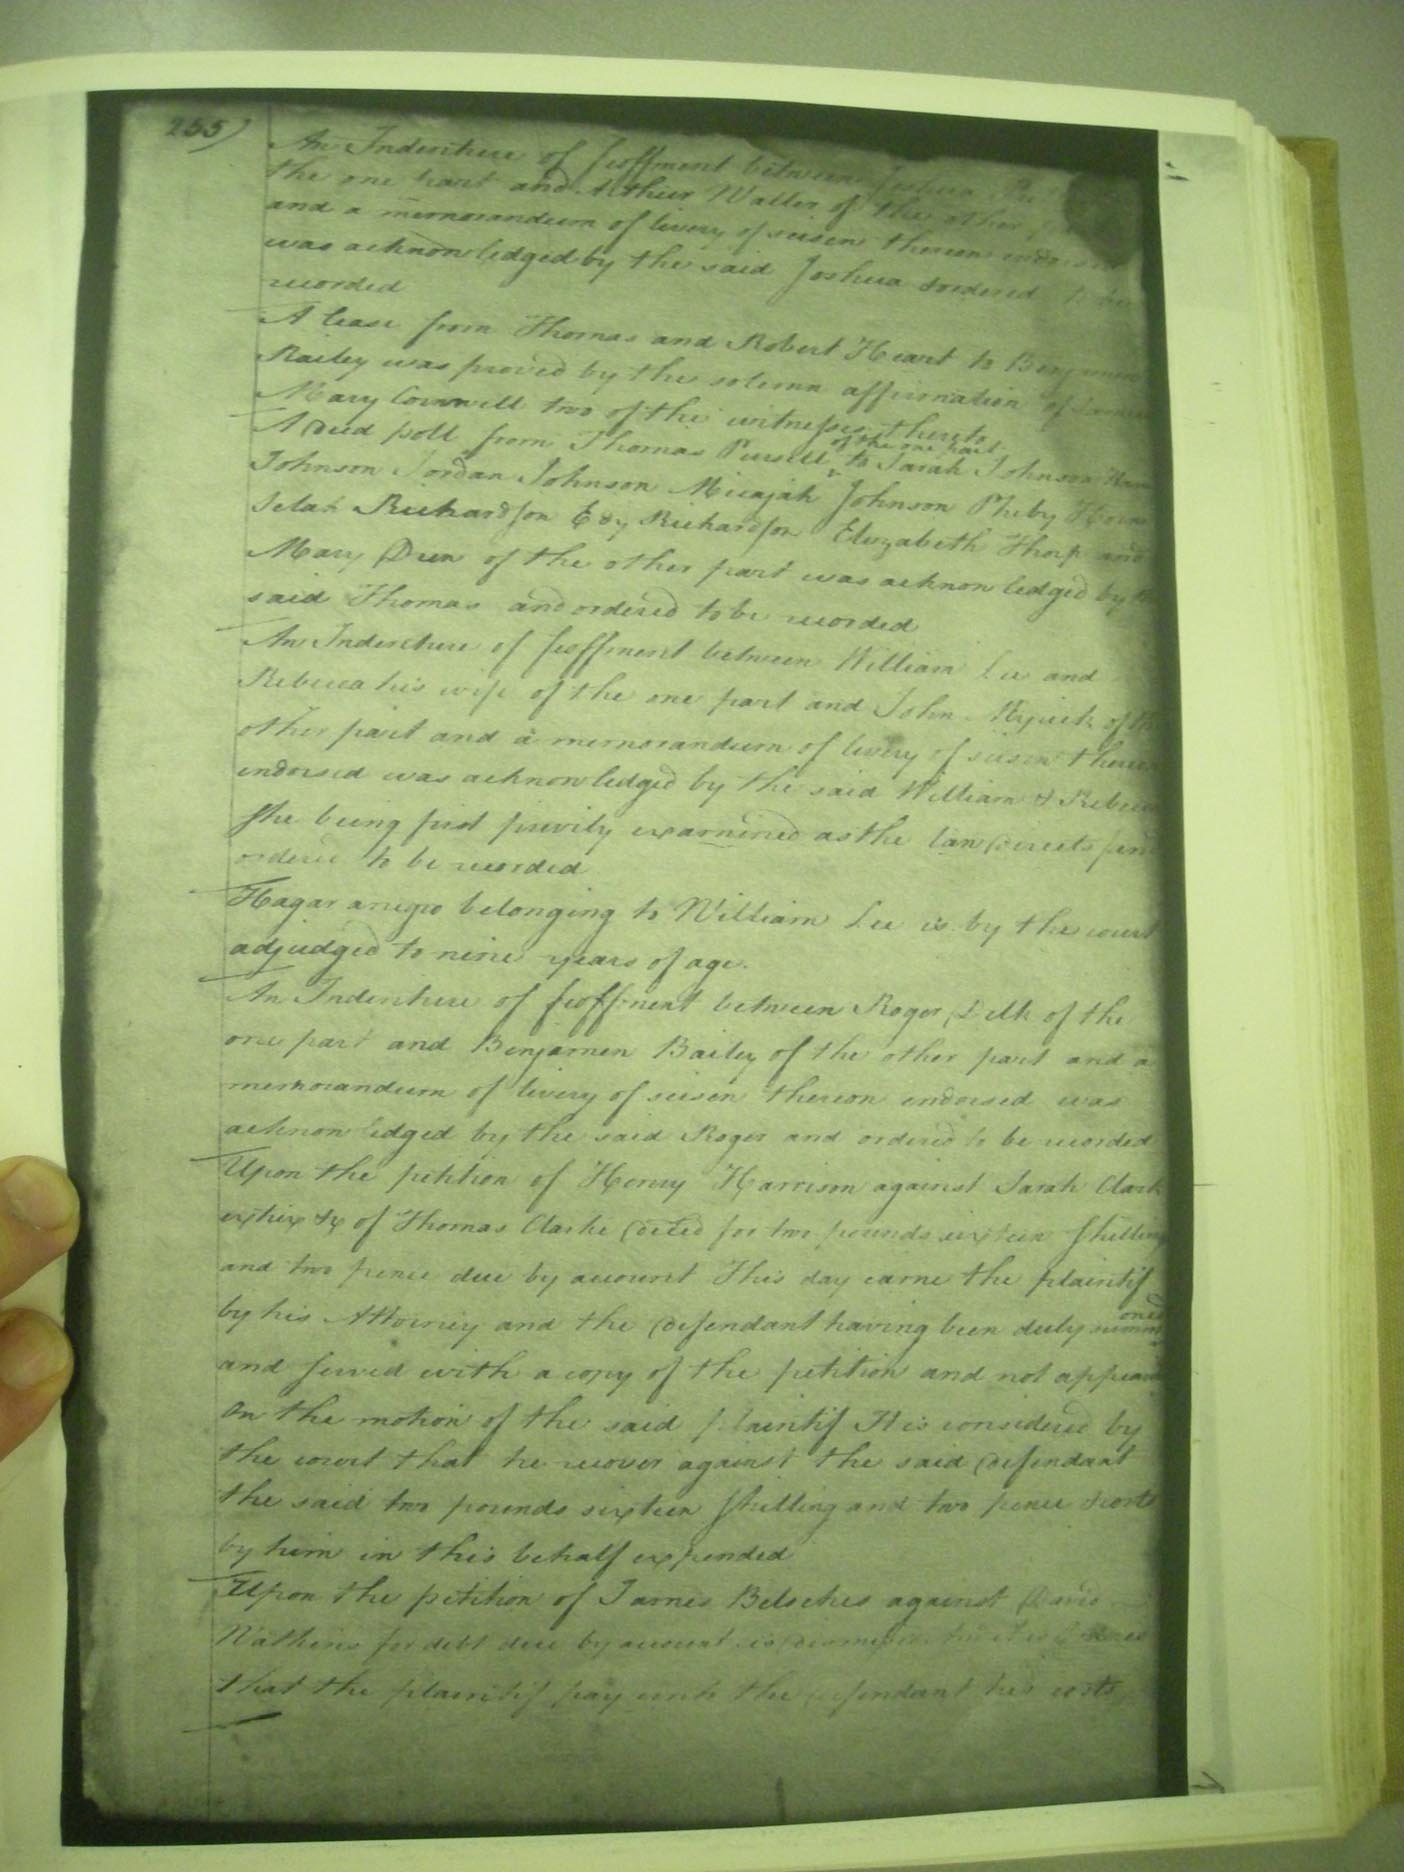 255)
An Indenture of feoffment between Joshua
the one part and Arthur Waller of the other
and a memorandum of livery of seisen thereon endorsed
was acknowledged by the said Joshua & ordered to be
recorded
A lease from Thomas and Robert Heart to Benjamin
Bailey was proved by the solemn affirmation of
Mary Cornwell two of the witnesses thereto
of the one part
A Deed poll from Thomas Pursell to Sarah Johnson
Johnson Jordan Johnson Micajah Johnson Pheby
Selah Richardson Edy Richardson Elizabeth Thorp and
Mary Dren of the other part was acknowledged by the
said Thomas and ordered to be recorded
An Indenture of feoffment between William Lee and
Rebecca his wife of the one part and John Myrick of the
other part and a memorandum of livery of seisen thereon
endorsed was acknowledged by the said William & Rebecca
she being first privily examined as the law directs and
ordered to be recorded
Hagar a negro belonging to William Lee is by the court
adjudged to nine years of age.
An Indenture of feoffment between Roger Delk of the
one part and Benjamen Bailey of the other part and a
memorandum of livery of seisen thereon endorsed was
acknowledged by the said Roger and ordered to be recorded
Upon the petition of Henry Harrison against Sarah Clark
extrix &x of Thomas Clarke deced for two pounds sixteen shilling
and two pence due by account This day came the plaintif
by his Attorney and the defendant having been duly summoned
and served with a copy of the petition and not appearing
On the motion of the said plaintif It is considered by
the court that he recover against the said defendant
the said two pounds sixteen shilling and two pence & costs
by him in this behalf expended
Upon the petition of James Belsches against David
Watkins for debt due by account is dismissed and it is ordered
that the plaintif pay unto the defendant his costs